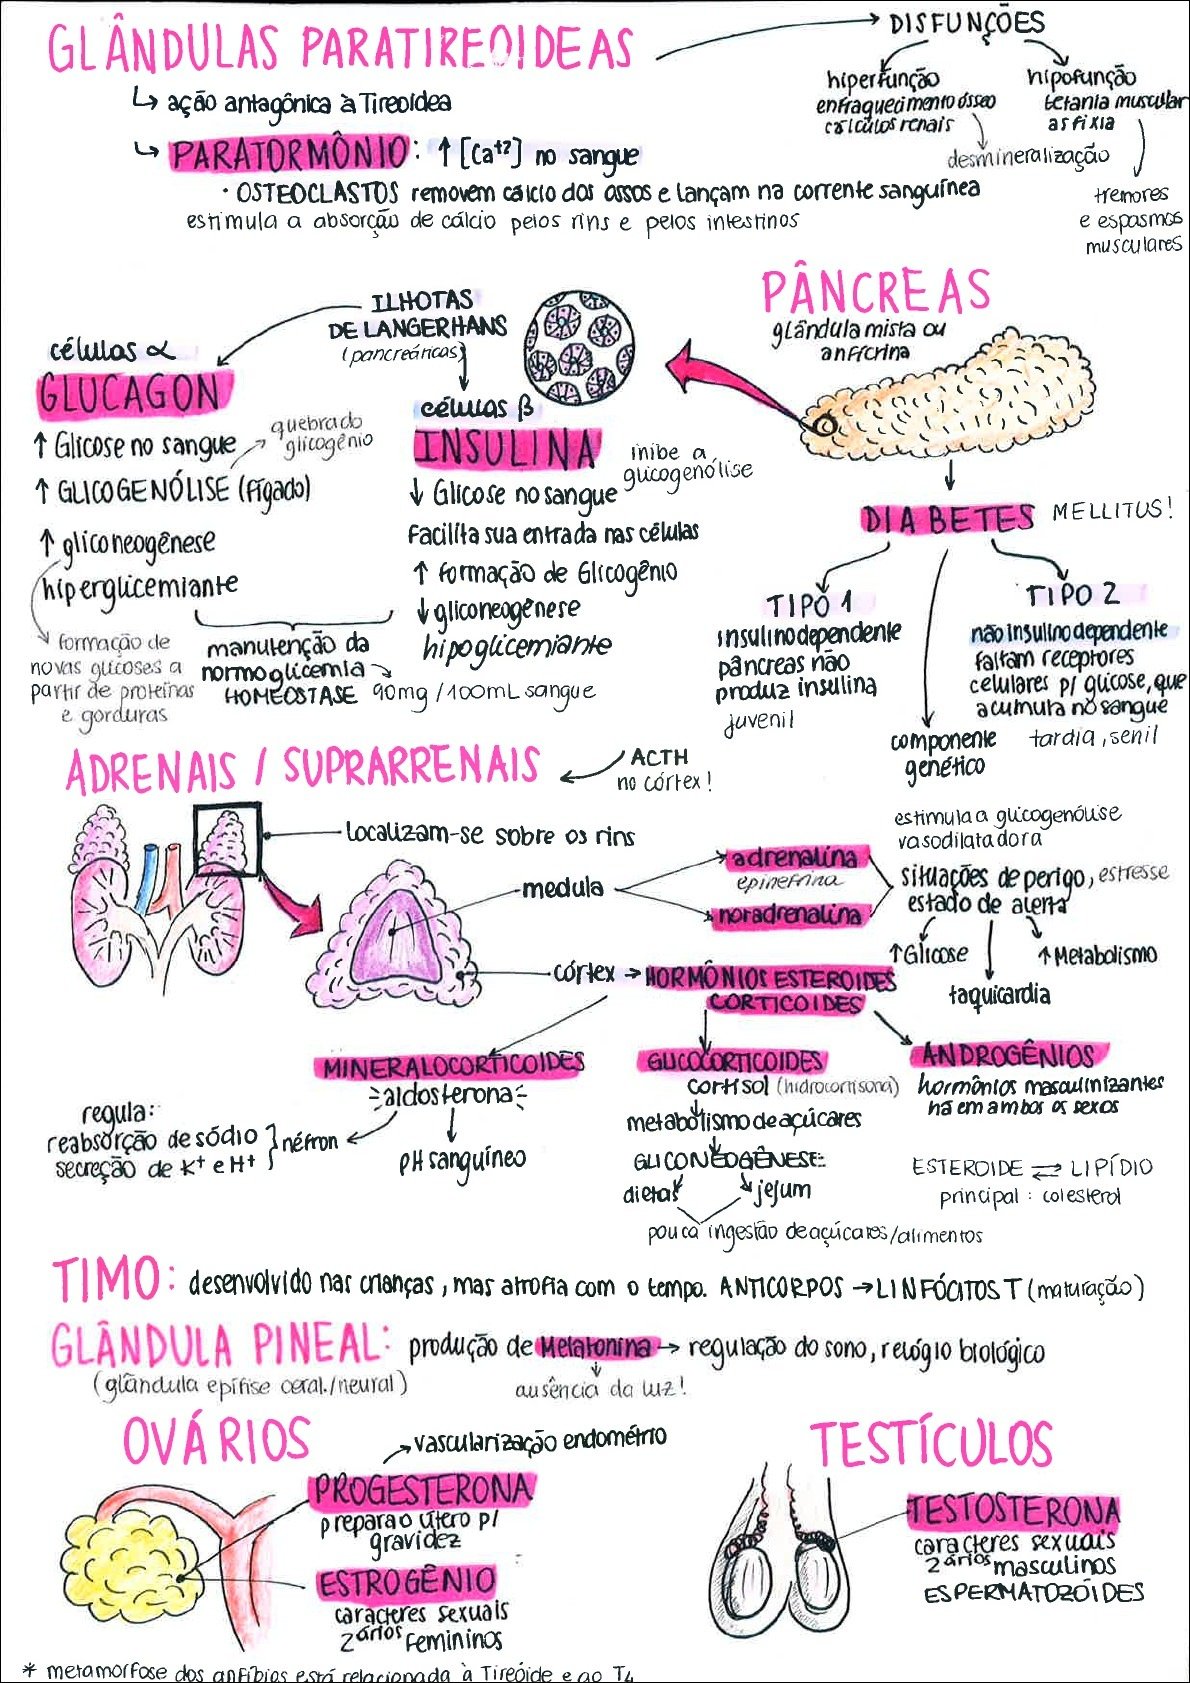 GLÂNDULAS PARATIREOIDEAS
↳ ação antagônica à Tireoidea
↳ PARATORMÔNIO: ↑ [Ca⁺²] no sangue
· OSTEOCLASTOS removem cálcio dos ossos e lançam na corrente sanguínea
estimula a absorção de cálcio pelos rins e pelos intestinos
DISFUNÇÕES
hiperfunção
enfraquecimento ósseo
cálculos renais
desmineralização
hipofunção
tetania muscular
asfixia
tremores
e espasmos
musculares
PÂNCREAS
glândula mista ou
anfícrina
ILHOTAS
DE LANGERHANS
(pancreáticas)
células α
GLUCAGON
↑ Glicose no sangue
quebra do
glicogênio
↑ GLICOGENÓLISE (Fígado)
↑ gliconeogênese
hiperglicemiante
formação de
novas glicoses a
partir de proteínas
e gorduras
manutenção da
normoglicemia
HOMEOSTASE 90mg/100mL sangue
células β
INSULINA
inibe a
glicogenólise
↓ Glicose no sangue
Facilita sua entrada nas células
↑ formação de Glicogênio
↓ gliconeogênese
hipoglicemiante
DIABETES MELLITUS!
TIPO 1
insulinodependente
pâncreas não
produz insulina
juvenil
componente
genético
TIPO 2
não insulinodependente
faltam receptores
celulares p/ glicose, que
acumura no sangue
tardia, senil
ADRENAIS / SUPRARRENAIS
ACTH
no córtex!
Localizam-se sobre os rins
medula
adrenalina
epinefrina
noradrenalina
estimula a glicogenólise
vasodilatadora
situações de perigo, estresse
estado de alerta
↑ Glicose
taquicardia
↑ Metabolismo
córtex → HORMÔNIOS ESTEROIDES
CORTICOIDES
MINERALOCORTICOIDES
aldosterona
regula:
reabsorção de sódio
secreção de K⁺ e H⁺
néfron
pH sanguíneo
GLICOCORTICOIDES
cortisol (hidrocortisona)
metabolismo de açúcares
GLICONEOGÊNESE:
dieta
jejum
pouca ingestão de açúcares/alimentos
ANDROGÊNIOS
hormônios masculinizantes
há em ambos os sexos
ESTEROIDE ⇌ LIPÍDIO
principal: colesterol
TIMO: desenvolvido nas crianças, mas atrofia com o tempo. ANTICORPOS → LINFÓCITOS T (maturação)
GLÂNDULA PINEAL: produção de Melatonina → regulação do sono, relógio biológico
(glândula epífise ceral./neural)
ausência da luz!
OVÁRIOS
vascularização endométrio
PROGESTERONA
prepara o útero p/
gravidez
ESTROGÊNIO
caracteres sexuais
2ários Femininos
TESTÍCULOS
TESTOSTERONA
caracteres sexuais
2ários masculinos
ESPERMATOZÓIDES
* metamorfose dos anfíbios está relacionada à Tireóide e ao T4